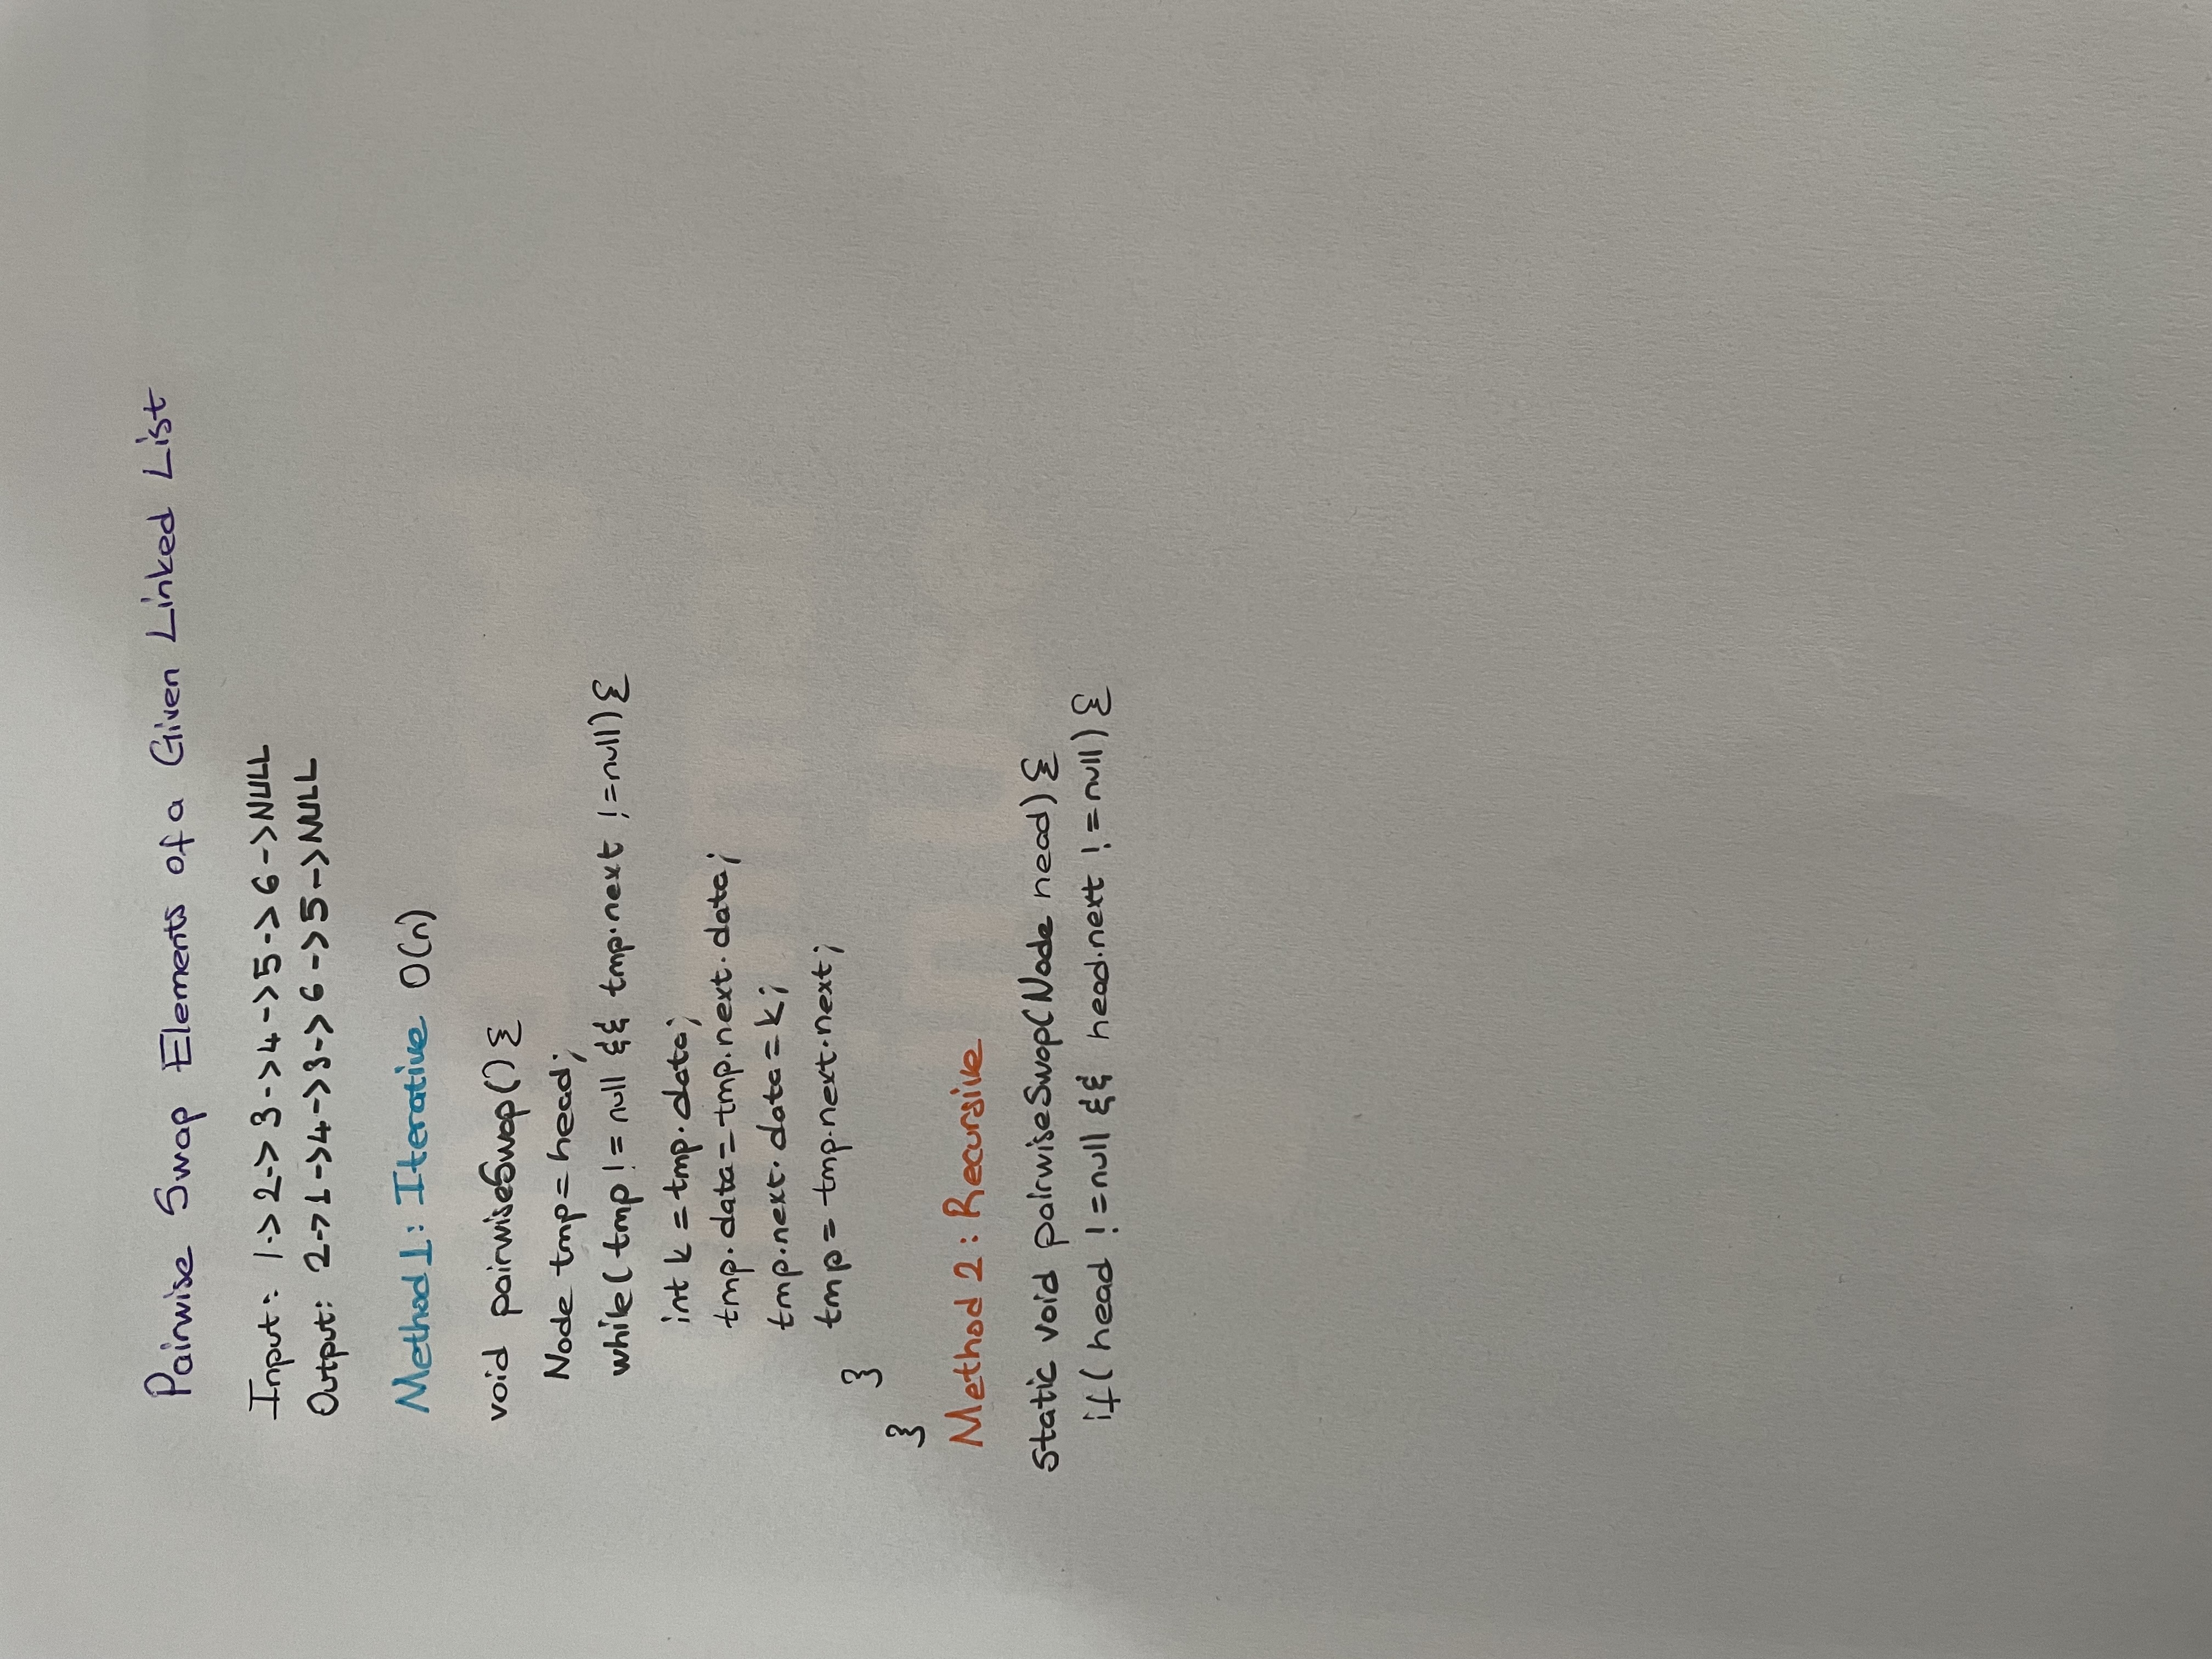 Pairwise Swap Elements of a Given Linked List
Input: 1->2->3->4->5->6->NULL
Output: 2->1->4->3->6->5->NULL
Method 1: Iterative O(n)
void pairwiseSwap(){
Node tmp=head;
while(tmp!=null && tmp.next !=null){
int k=tmp.data;
tmp.data=tmp.next.data;
tmp.next.data=k;
tmp=tmp.next.next;
}
}
Method 2: Recursive
static void pairwiseSwap(Node head){
if(head !=null && head.next !=null){